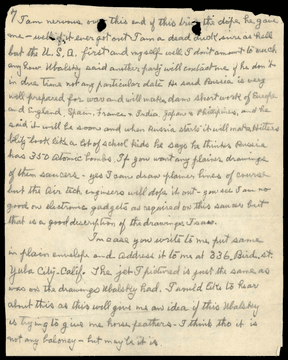 7 I am nervous over this end of this bring the dope he gave
me - well if it ever got out I am a dead duck sure as hell
but the U.S.A. first and myself will I don't amount to much
any how Ubalsky said another party will evaluate me if he don't
in due time not any particular date He said Russia is very
well prepared for war and will make damn short work of Europe
and England, Spain, France - India, Japan & Philipines, and he
said it will be soon and when Russia starts it will make Hitlers
blitz look like a lot of school kids he says he thinks Russia
has 350 Atomic bombs. If you want any plainer drawings
of them saucers - yes I can draw plainer lines of course
but the Air tech engineers will dope it out - you see I am no
good on electronic gadgets as required on this saucer but
that is a good description of the drawings I saw.
In case you write to me put same
in plain envelope and address it to me at 336, Bird, St.
Yuba City - Calif. The job I pictured is just the same as
was on the drawings Ubalsky had. I would like to hear
about this as this will give me an idea if this Ubalsky
is trying to give me horse feathers - I think tho it is
not any baloney - but maybe it is.